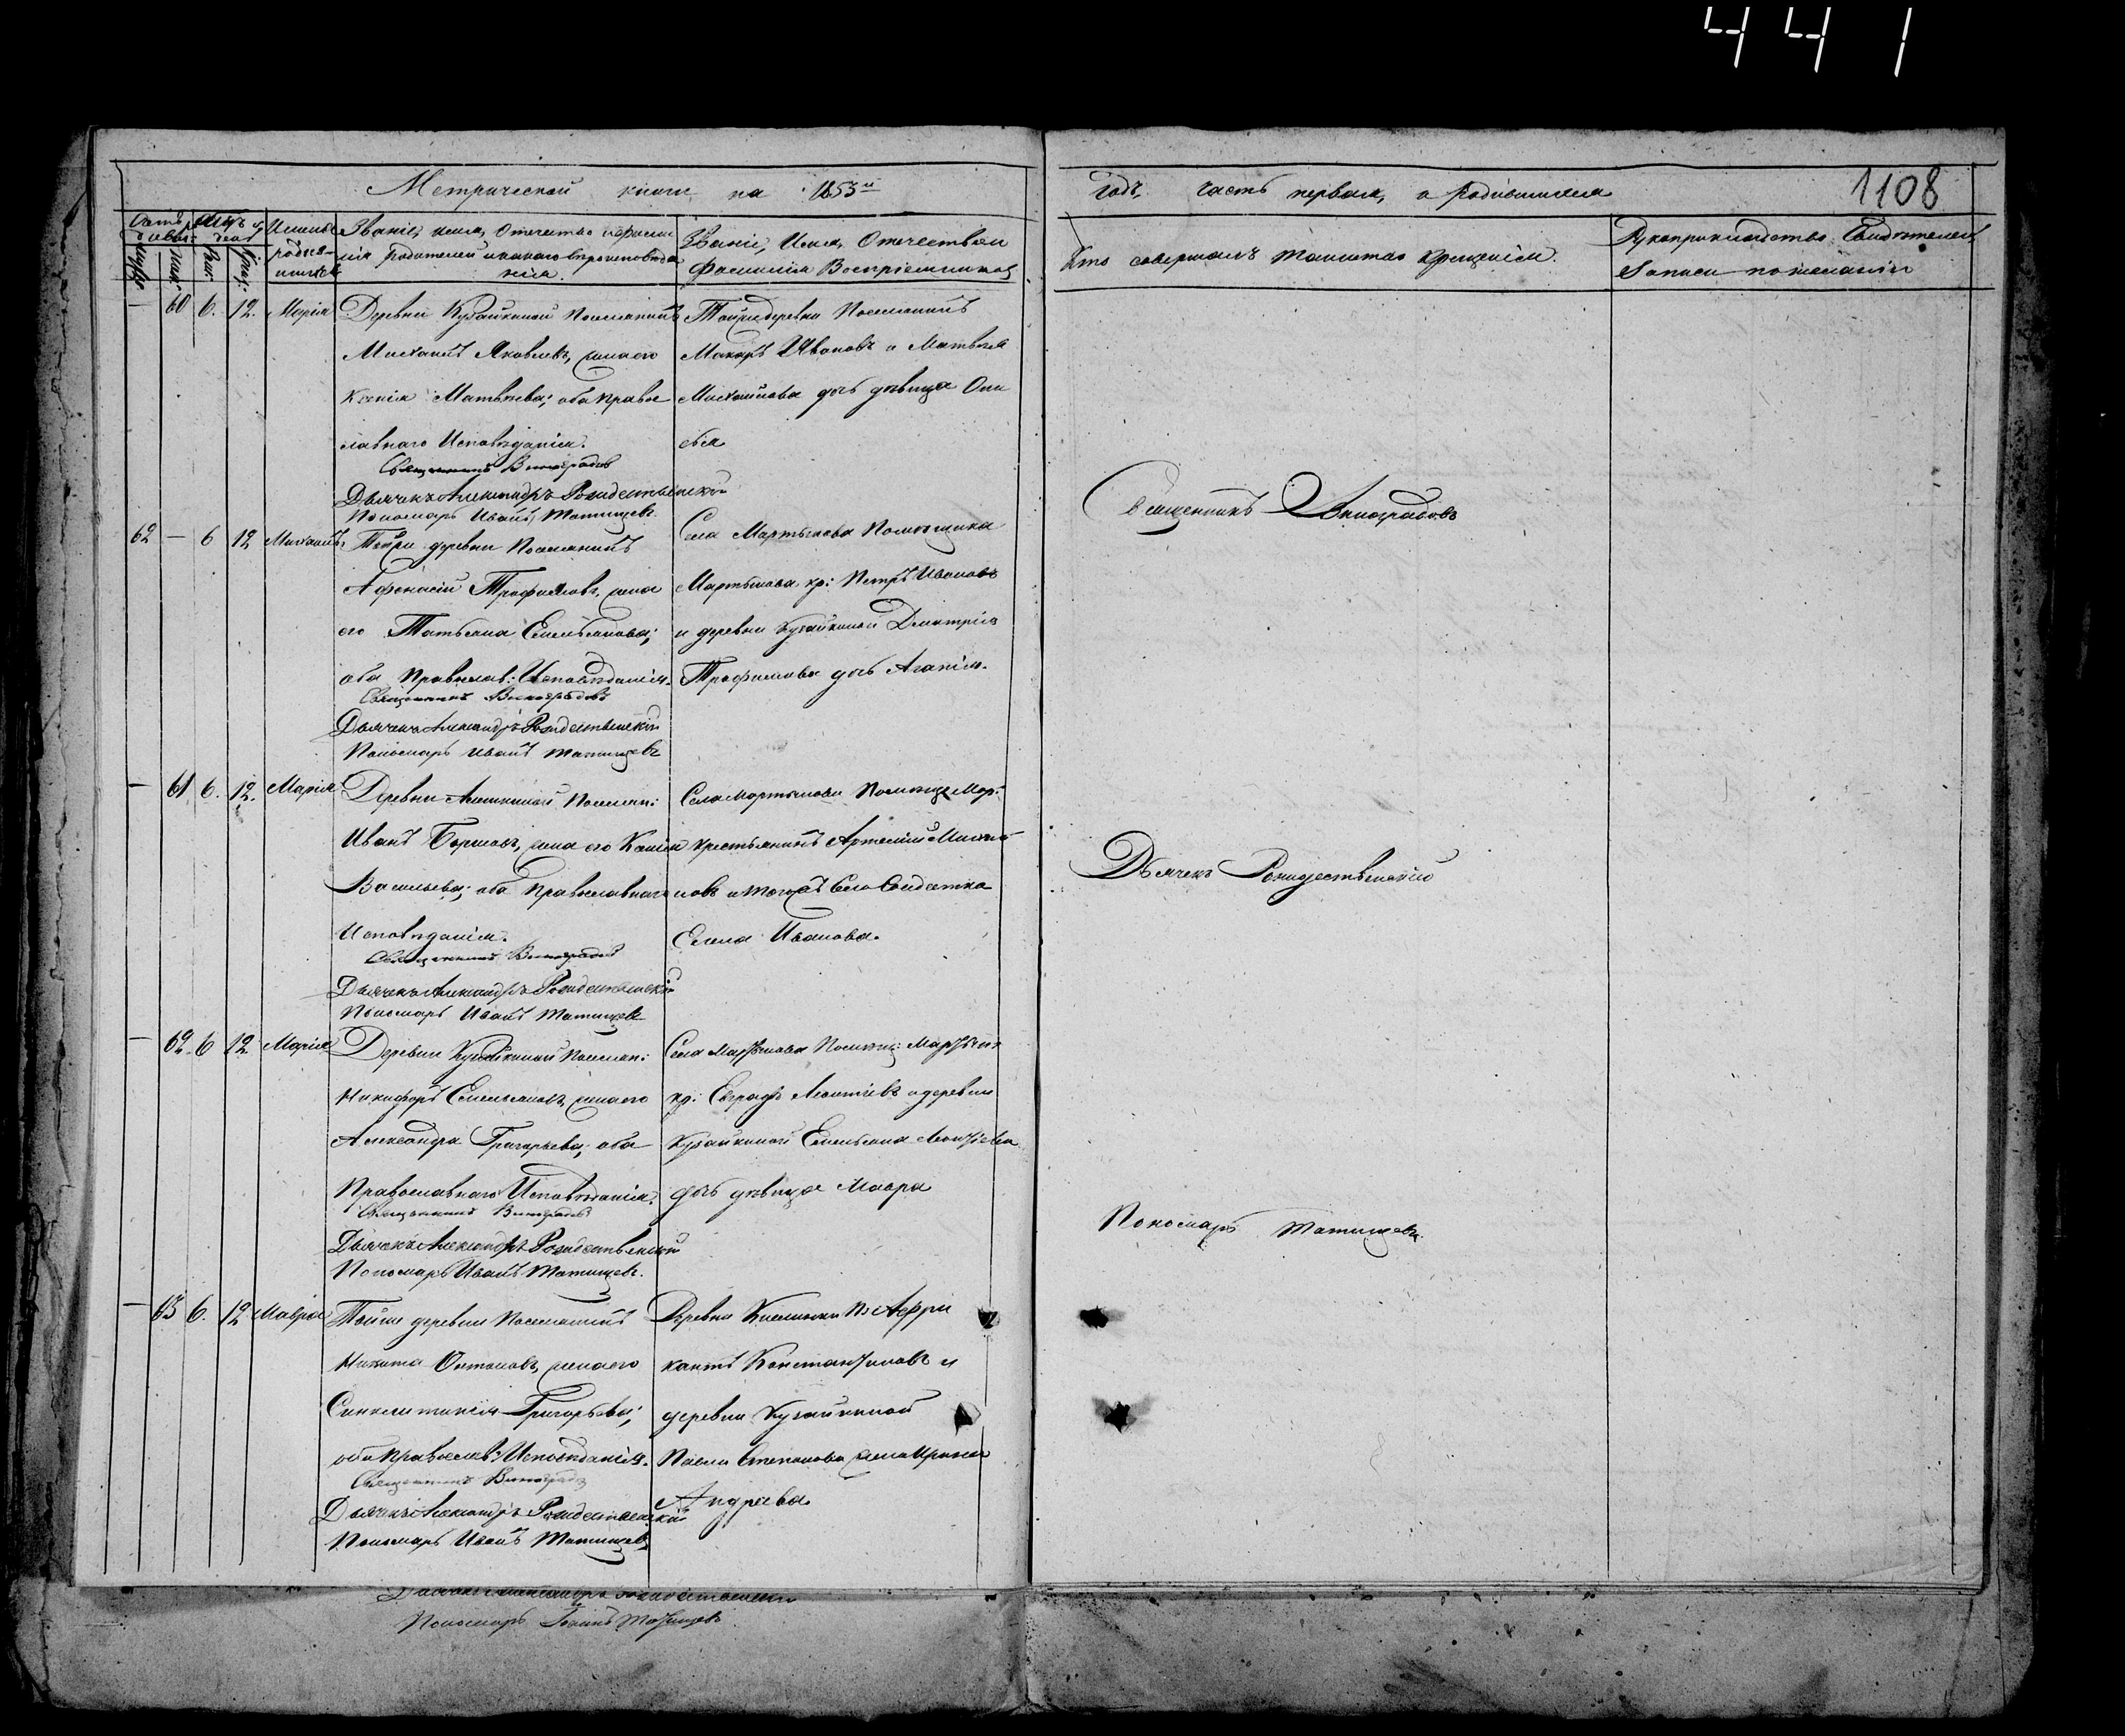 441
Метрической книги на 1853й
годъ, часть первая, о родившихся
1108
Счетъ родив:
Мѣсяцъ и день
Имена родив-шихся
Званіе, имя, Отечество и фамилія Родителей и какого вѣроисповѣданія.
Званіе, Имя, Отечество и Фамилія Воспріемниковъ
Кто совершалъ таинство крещенія.
Рукоприкладство Свидѣтелей Записи по желанію
— 60 6. 12. Марія
Деревни Кузайкиной Поселянинъ
Михаилъ Яковлевъ, жена его
Ксенія Матвѣева; оба право
славнаго Исповѣданія.
Священникъ Виноградовъ
Дьячекъ Александръ Рождественский
Пономарь Иванъ Татищевъ
Той же деревни Поселянинъ
Макаръ Ивановъ и Матвѣя
Михайлова дочь дѣвица
62 — 6 12 Михаилъ
Той же деревни Поселянинъ
Афонасій Трофимовъ, жена
его Татьяна Емельянова;
оба Православ: Исповѣданія.
Священникъ Виноградовъ
Дьячекъ Александръ Рождественский
Пономарь Иванъ Татищевъ
Села Мартынова Помѣщика
Мартынова кр: Петръ Ивановъ
и деревни Кузайкиной Димитрія
Трофимова дочь Агапія.
— 61 6. 12. Марія
Деревни Поселян:
Иванъ жена его Ксенія
Васильева; оба Православнаго
Исповѣданія.
Священникъ Виноградовъ
Дьячекъ Александръ Рождественский
Пономарь Иванъ Татищевъ
Села Мартынова Помѣщ Мар:
крестьянинъ Артемій Михай-
ловъ и тогожъ Села Солдатка
Елена Иванова.
— 62. 6 12. Марія
Деревни Кузайкиной Поселян:
Никифоръ Емельяновъ, жена его
Александра Григорьева; оба
Православнаго Исповѣданія.
Священникъ Виноградовъ
Дьячекъ Александръ Рождественский
Пономарь Иванъ Татищевъ.
Села Мартынова Помѣщ: Мартын:
кр: Евграфъ Леонтіевъ и деревни
Кузайкиной Емельяна Леонтіева
дочь дѣвица Мавра
— 63 6. 12 Мавра
Той же деревни Поселянинъ
Никита Антоновъ, жена его
Синклитикія Григорьева;
оба Православ: Исповѣданія.
Священникъ Виноградовъ
Дьячекъ Александръ Рождественский
Пономарь Иванъ Татищевъ
Деревни
Константиновъ и
деревни Кузайкиной
Степанова жена Ирина
Андреева.
Священникъ Виноградовъ
Дьячекъ Рождественский
Пономарь Татищевъ.
Дьячекъ Александръ Рождественский
Пономарь Иоаннъ Татищевъ.